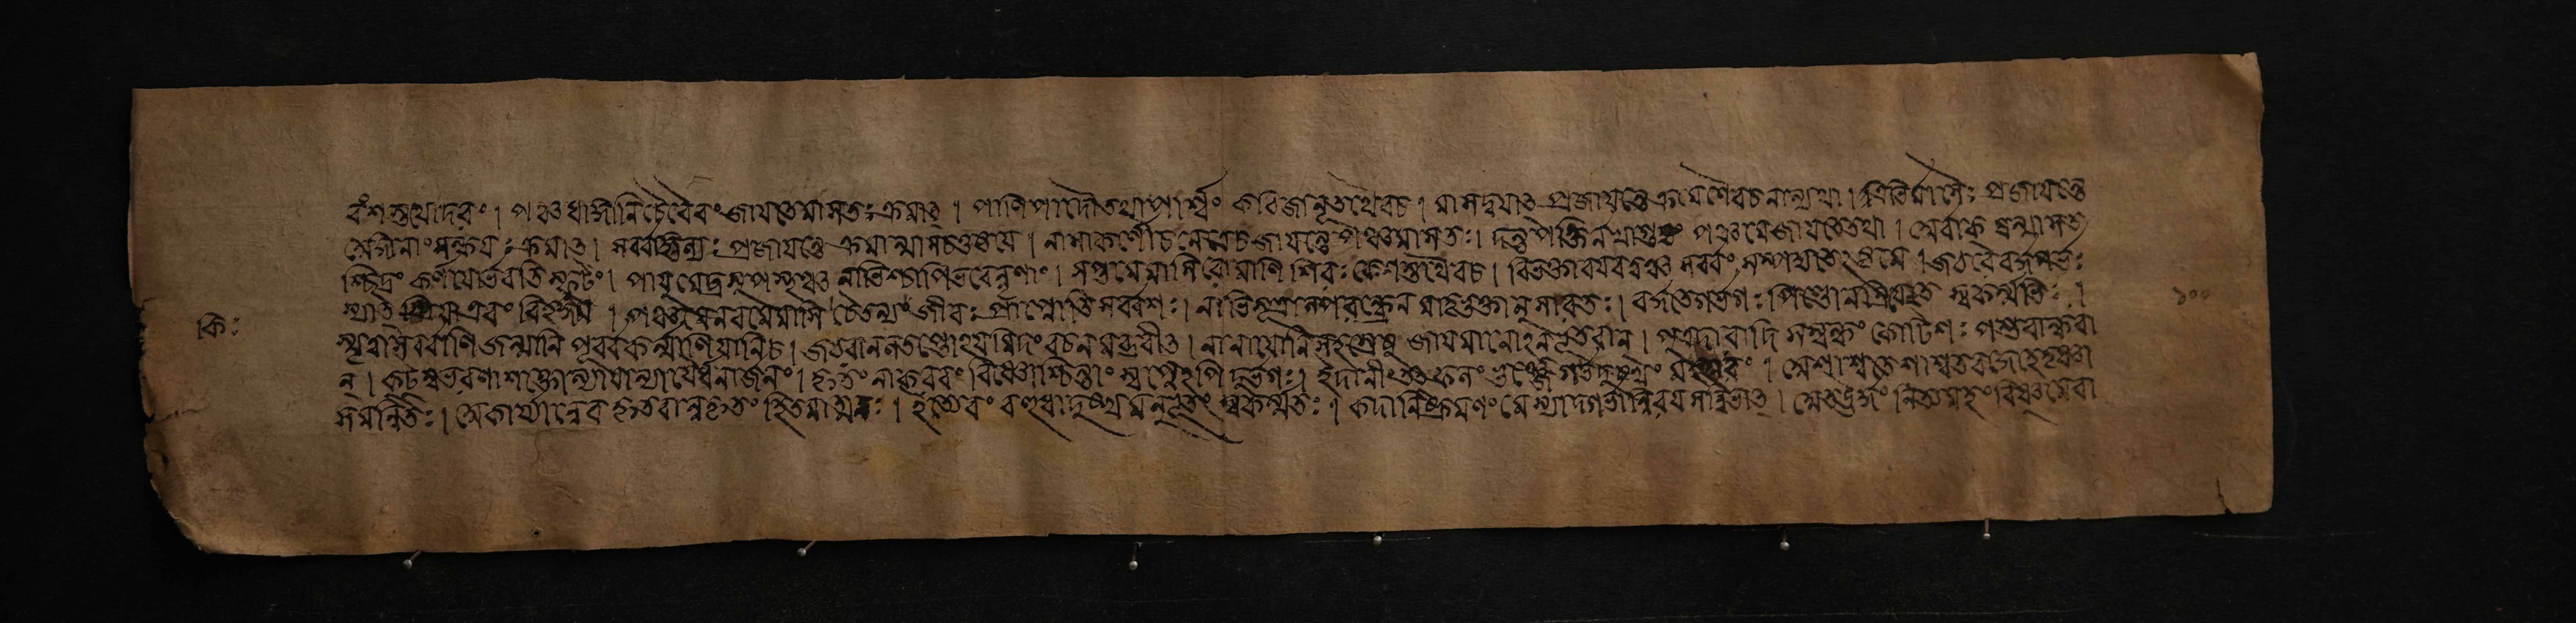 বংশস্তথোদরং। পঞ্চধাঙ্গানি চৈবৈবং জায়তে মাসতঃ ক্রমাৎ। পাণিপাদৌ তথা পার্শ্বং কটিজানূতথৈবচ। মাসদ্বয়াৎ প্রজায়ন্তে ক্রমেণৈবচ নান্যথা। ত্রিভির্মাসৈঃ প্রজায়ন্তে
অঙ্গানাং সন্ধয়ঃ ক্রমাৎ। সর্ব্বাঙ্গুল্যঃ প্রজায়ন্তে ক্রমান্মাসচতুষ্টয়ে। নাসাকর্ণৌ চ নেত্রে চ জায়ন্তে পঞ্চমাসতঃ। দন্তপঙ্ক্তির্নখাগুহ্যং পঞ্চমে জায়তে তথা। অর্ব্বাক্ ষন্মাসত
শ্চিদ্রং কর্ণয়োর্ভবতি স্ফুটং। পায়ুমেঢ্রমুপস্থঞ্চ নাভিশ্চাপি ভবেন্নৃণাং। সপ্তমে মাসি রোমাণি শিরঃ কেশস্তথৈবচ। বিভক্তাবয়বত্বঞ্চ সর্ব্বং সম্পদ্যতেঽষ্টমে। জঠরে বর্দ্ধতে গর্ভঃ
স্ত্রিয়া এবং বিহঙ্গম। পঞ্চমে নবমে মাসি চৈতন্যং জীবঃ প্রাপ্নোতি সর্ব্বশঃ। নাভিসূত্রাল্পরন্ধ্রেন মাতৃভুক্তানুসারতঃ। বর্দ্ধতে গর্ভগঃ পিণ্ডো ন ম্রিয়েত স্বকর্ম্মভিঃ।
স্মৃত্বা সর্ব্বাণি জন্মানি পূর্ব্বকর্ম্মাণি যানি চ। জঠরানলতপ্তোঽয়মিদং বচনমব্রবীৎ। নানাযোনিসহস্রেষু জায়মানোঽনুভূতবান্। পুত্রদারাদি সম্বন্ধং কোটিশঃ পশুবান্ধবা
ন্। কুটুম্বভরণাশক্তো ন্যায়ান্যায়ৈর্ধনার্জনং। কৃতং নাকরবং বিষ্ণোশ্চিন্তাং স্বপ্নেঽপি দুর্ভগঃ। ইদানীং তৎফলং ভুঞ্জে গর্ভদুঃখং মহত্তরং। অশাশ্বতে শাশ্বতবদ্দেহে তৃষ্ণা
সমন্বিতঃ। অকার্য্যান্যেব কৃতবান্নকৃতং হিতমাত্মনঃ। ইত্যেবং বহুধা দুঃখমনুভূয় স্বকর্ম্মতঃ। কদা নিষ্ক্রমণং মে স্যাদ্গর্ভান্নিরয়সন্নিভাৎ। অতঊর্দ্ধং নিত্যমহং বিষ্ণুমেবা
কিঃ
১০০